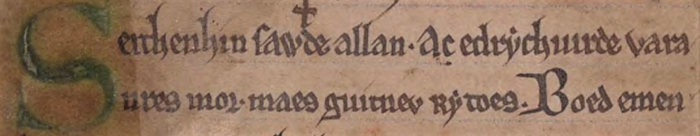 Seithenhin sawde allan· Ac edrychuirde vara
nres mor· maes guitnev rytoes. Boed emen